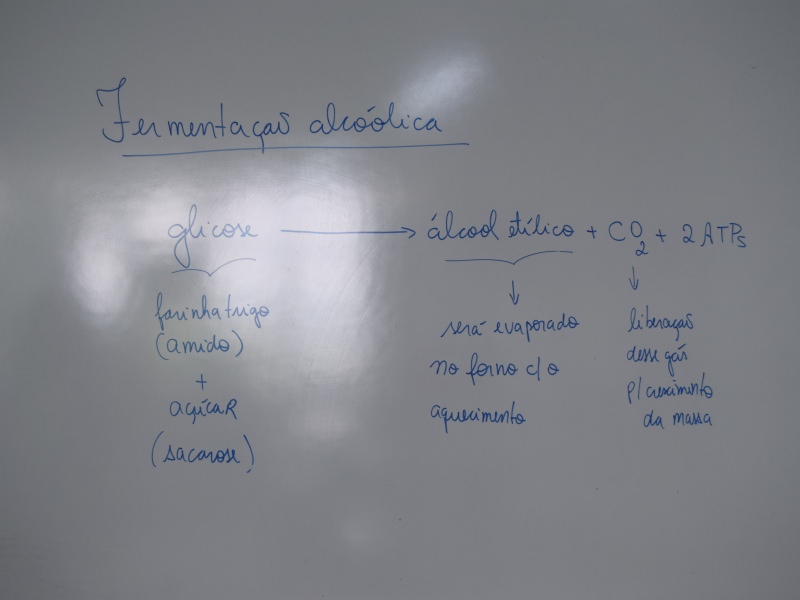 Fermentação alcoólica
glicose → álcool etílico + CO2 + 2 ATPs
farinha trigo
(amido)
+
açúcar
(sacarose)
↓
será evaporado
no forno c/ o
aquecimento
↓
liberação
desse gás
p/ crescimento
da massa